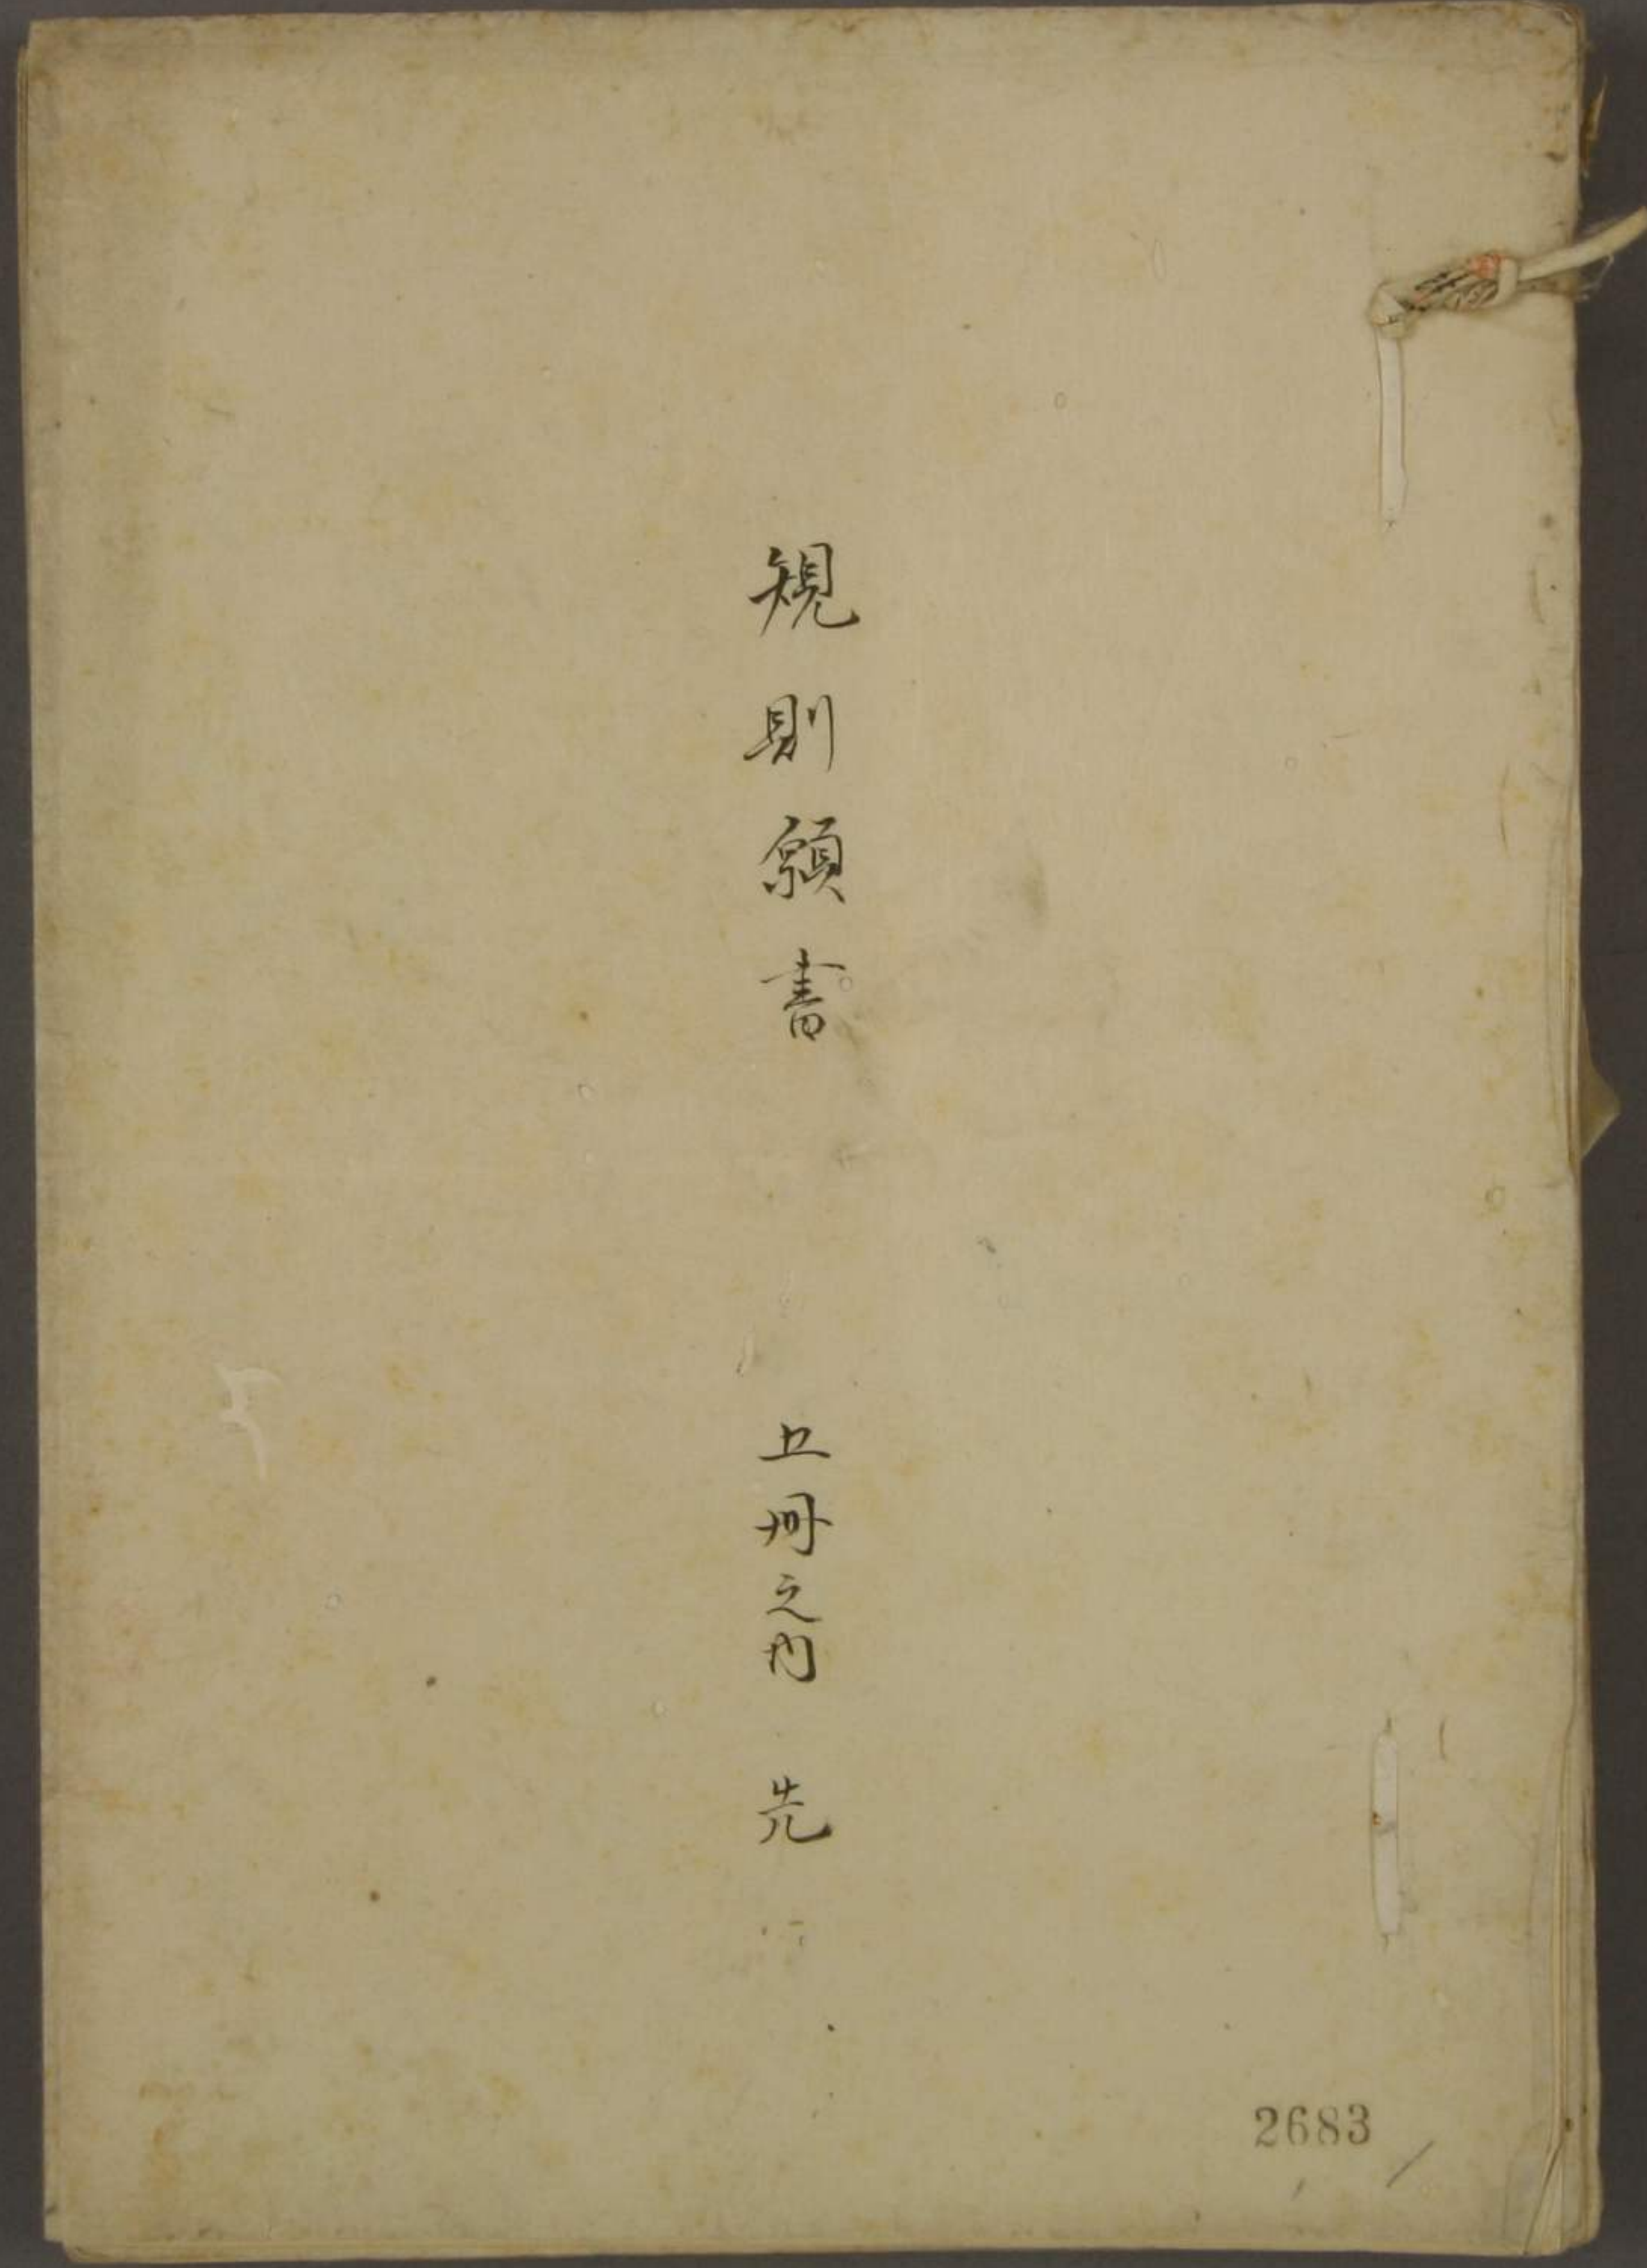 規則願書
五冊之内 先
2683